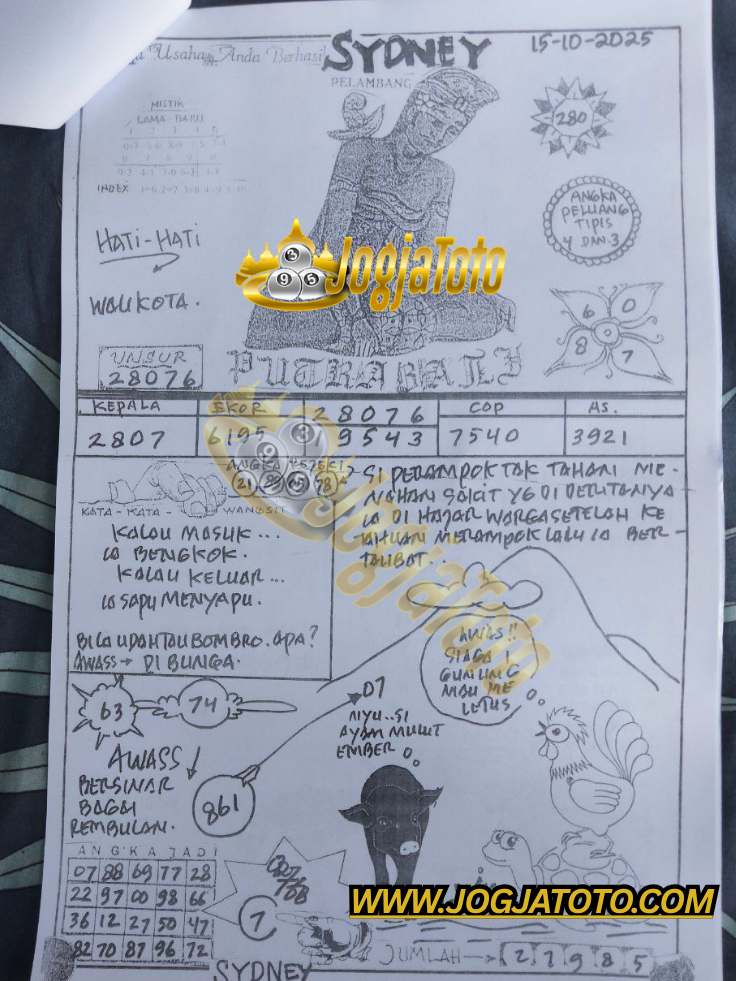 Usaha Anda Berhasil
SYDNEY
15-10-2025
PELAMBANG
MISTIK
LAMA - BARU
INDEX
280
ANGKA
PELUANG
TIPIS
4 DAN 3
HATI-HATI
WALIKOTA.
JogjaToto
6 0
8 7
UNSUR
28076
PUTRA BALI
KEPALA EKOR 28076 COP AS.
2807 6195 19543 7540 3921
KATA - KATA WANGSIT
KALAU MASUK...
IA BENGKOK.
KALAU KELUAR...
IA SAPU MENYAPU.
AWASS → DI BUNGA.
SI PERAMPOK TAK TAHAN ME-
NAHAN SAKIT YG DI DERITANYA
IA DI HAJAR WARGA SETELAH KE
TAHUAN MERAMPOK LALU IA BER-
JogjaToto
AWAS!!
SIAGA 1
GUNUNG
MAU ME
LETUS
63
74
07
NIYU..SI
AYAM MULUT
EMBER
AWASS
BERSINAR
BAGAI
REMBULAN.
861
ANGKA JADI
07 88 69 77 28
22 97 00 98 66
36 12 27 50 47
82 70 87 96 72
7
WWW.JOGJATOTO.COM
SYDNEY
JUMLAH → 2 7 9 8 5